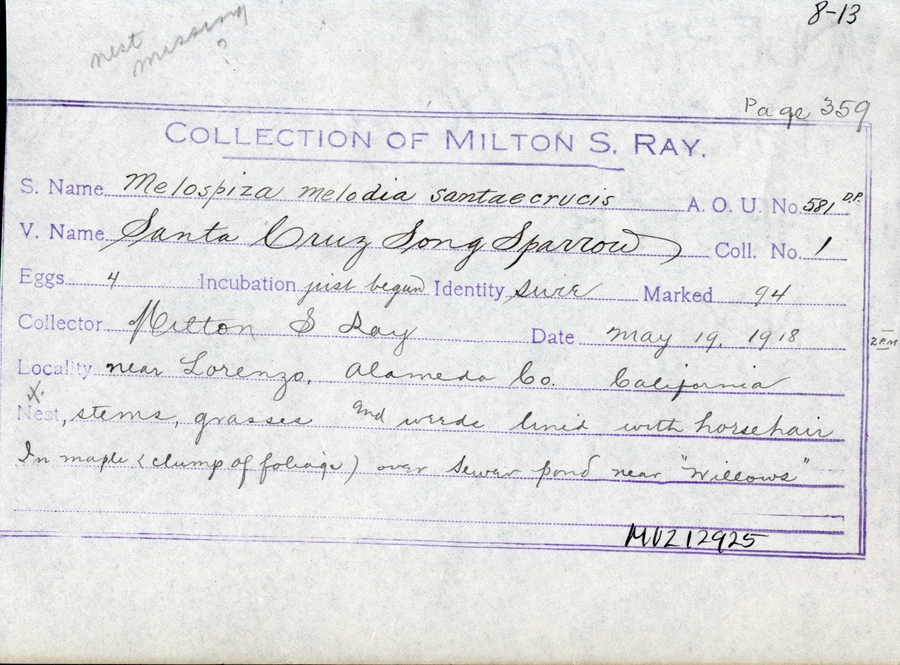 8-13
nest missing ?
Page 359
COLLECTION OF MILTON S. RAY.
S. Name Melospiza melodia santaecrucis A. O. U. No. 581 D.P.
V. Name Santa Cruz Song Sparrow Coll. No. 1
Eggs 4 Incubation just began Identity sure Marked 94
Collector Milton S Ray Date May 19, 1918
2 PM
Locality near Lorenzo, Alameda Co. California
X.
Nest, stems, grasses and weeds lined with horsehair
In maple (clump of foliage) over sewer pond near "Willows"
MVZ 12925